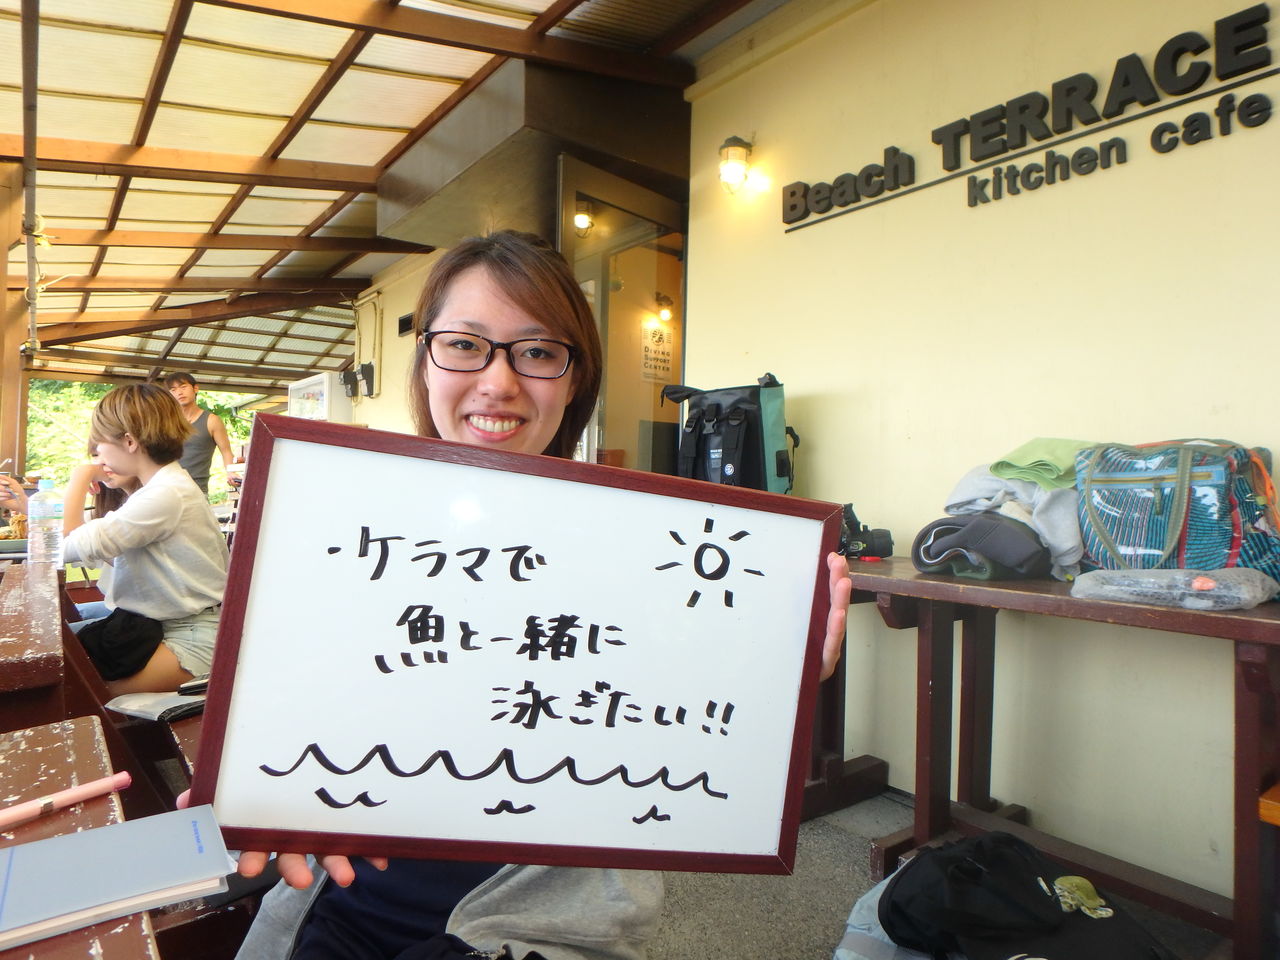 Beach TERRACE
kitchen cafe
DIVING
SUPPORT
CENTER
・ケラマで
魚と一緒に
泳ぎたい!!